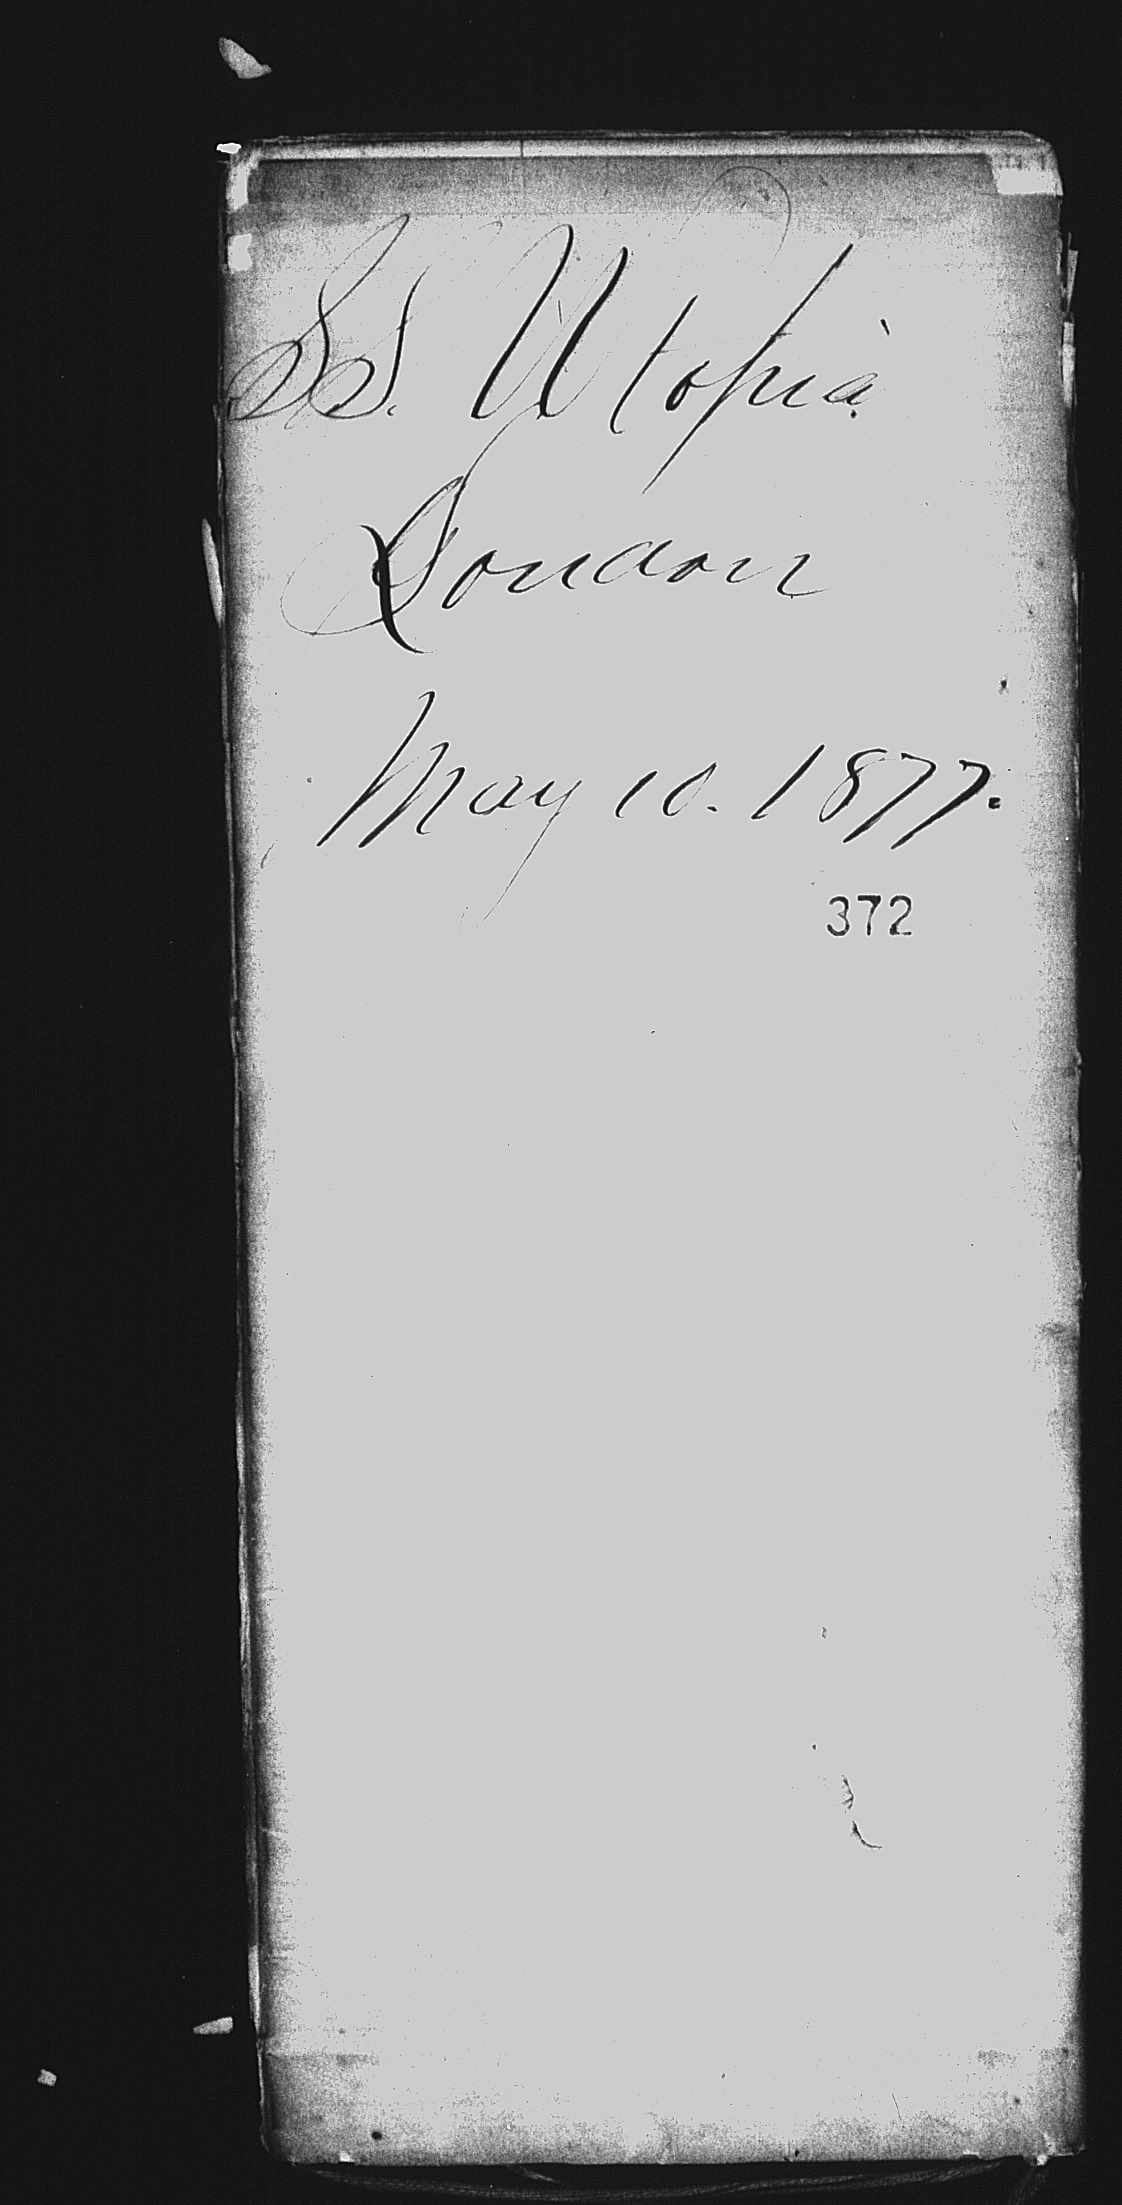 SS. Utopia
London
May 10. 1877.
372